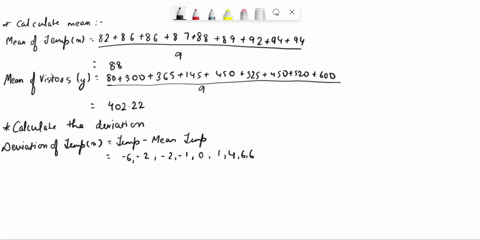 * Calculate mean :-
Mean of Temp(x) = 82+86+86+87+88+89+92+94+94
9
= 88
Mean of Visitors (y) = 80+300+365+145+450+325+450+520+600
9
= 402.22
* Calculate the deviation
Deviation of Temp(x) = Temp - Mean Temp
= -6, -2, -2, -1, 0, 1, 4, 6, 6